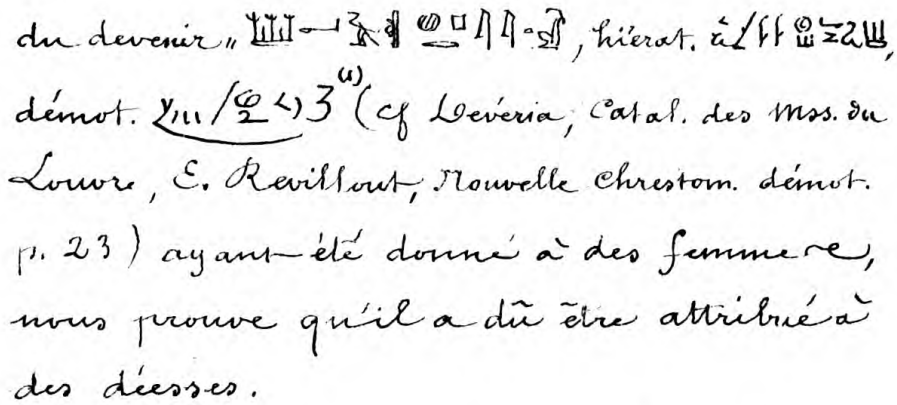 du devenir„ , hiérat. ,
démot. (1) (cf Devéria, Catal. des Mss. du
Louvre, E. Revillout, Nouvelle Chrestom. démot.
p. 23) ayant été donné à des femmes,
nous prouve qu'il a dû être attribué à
des déesses.